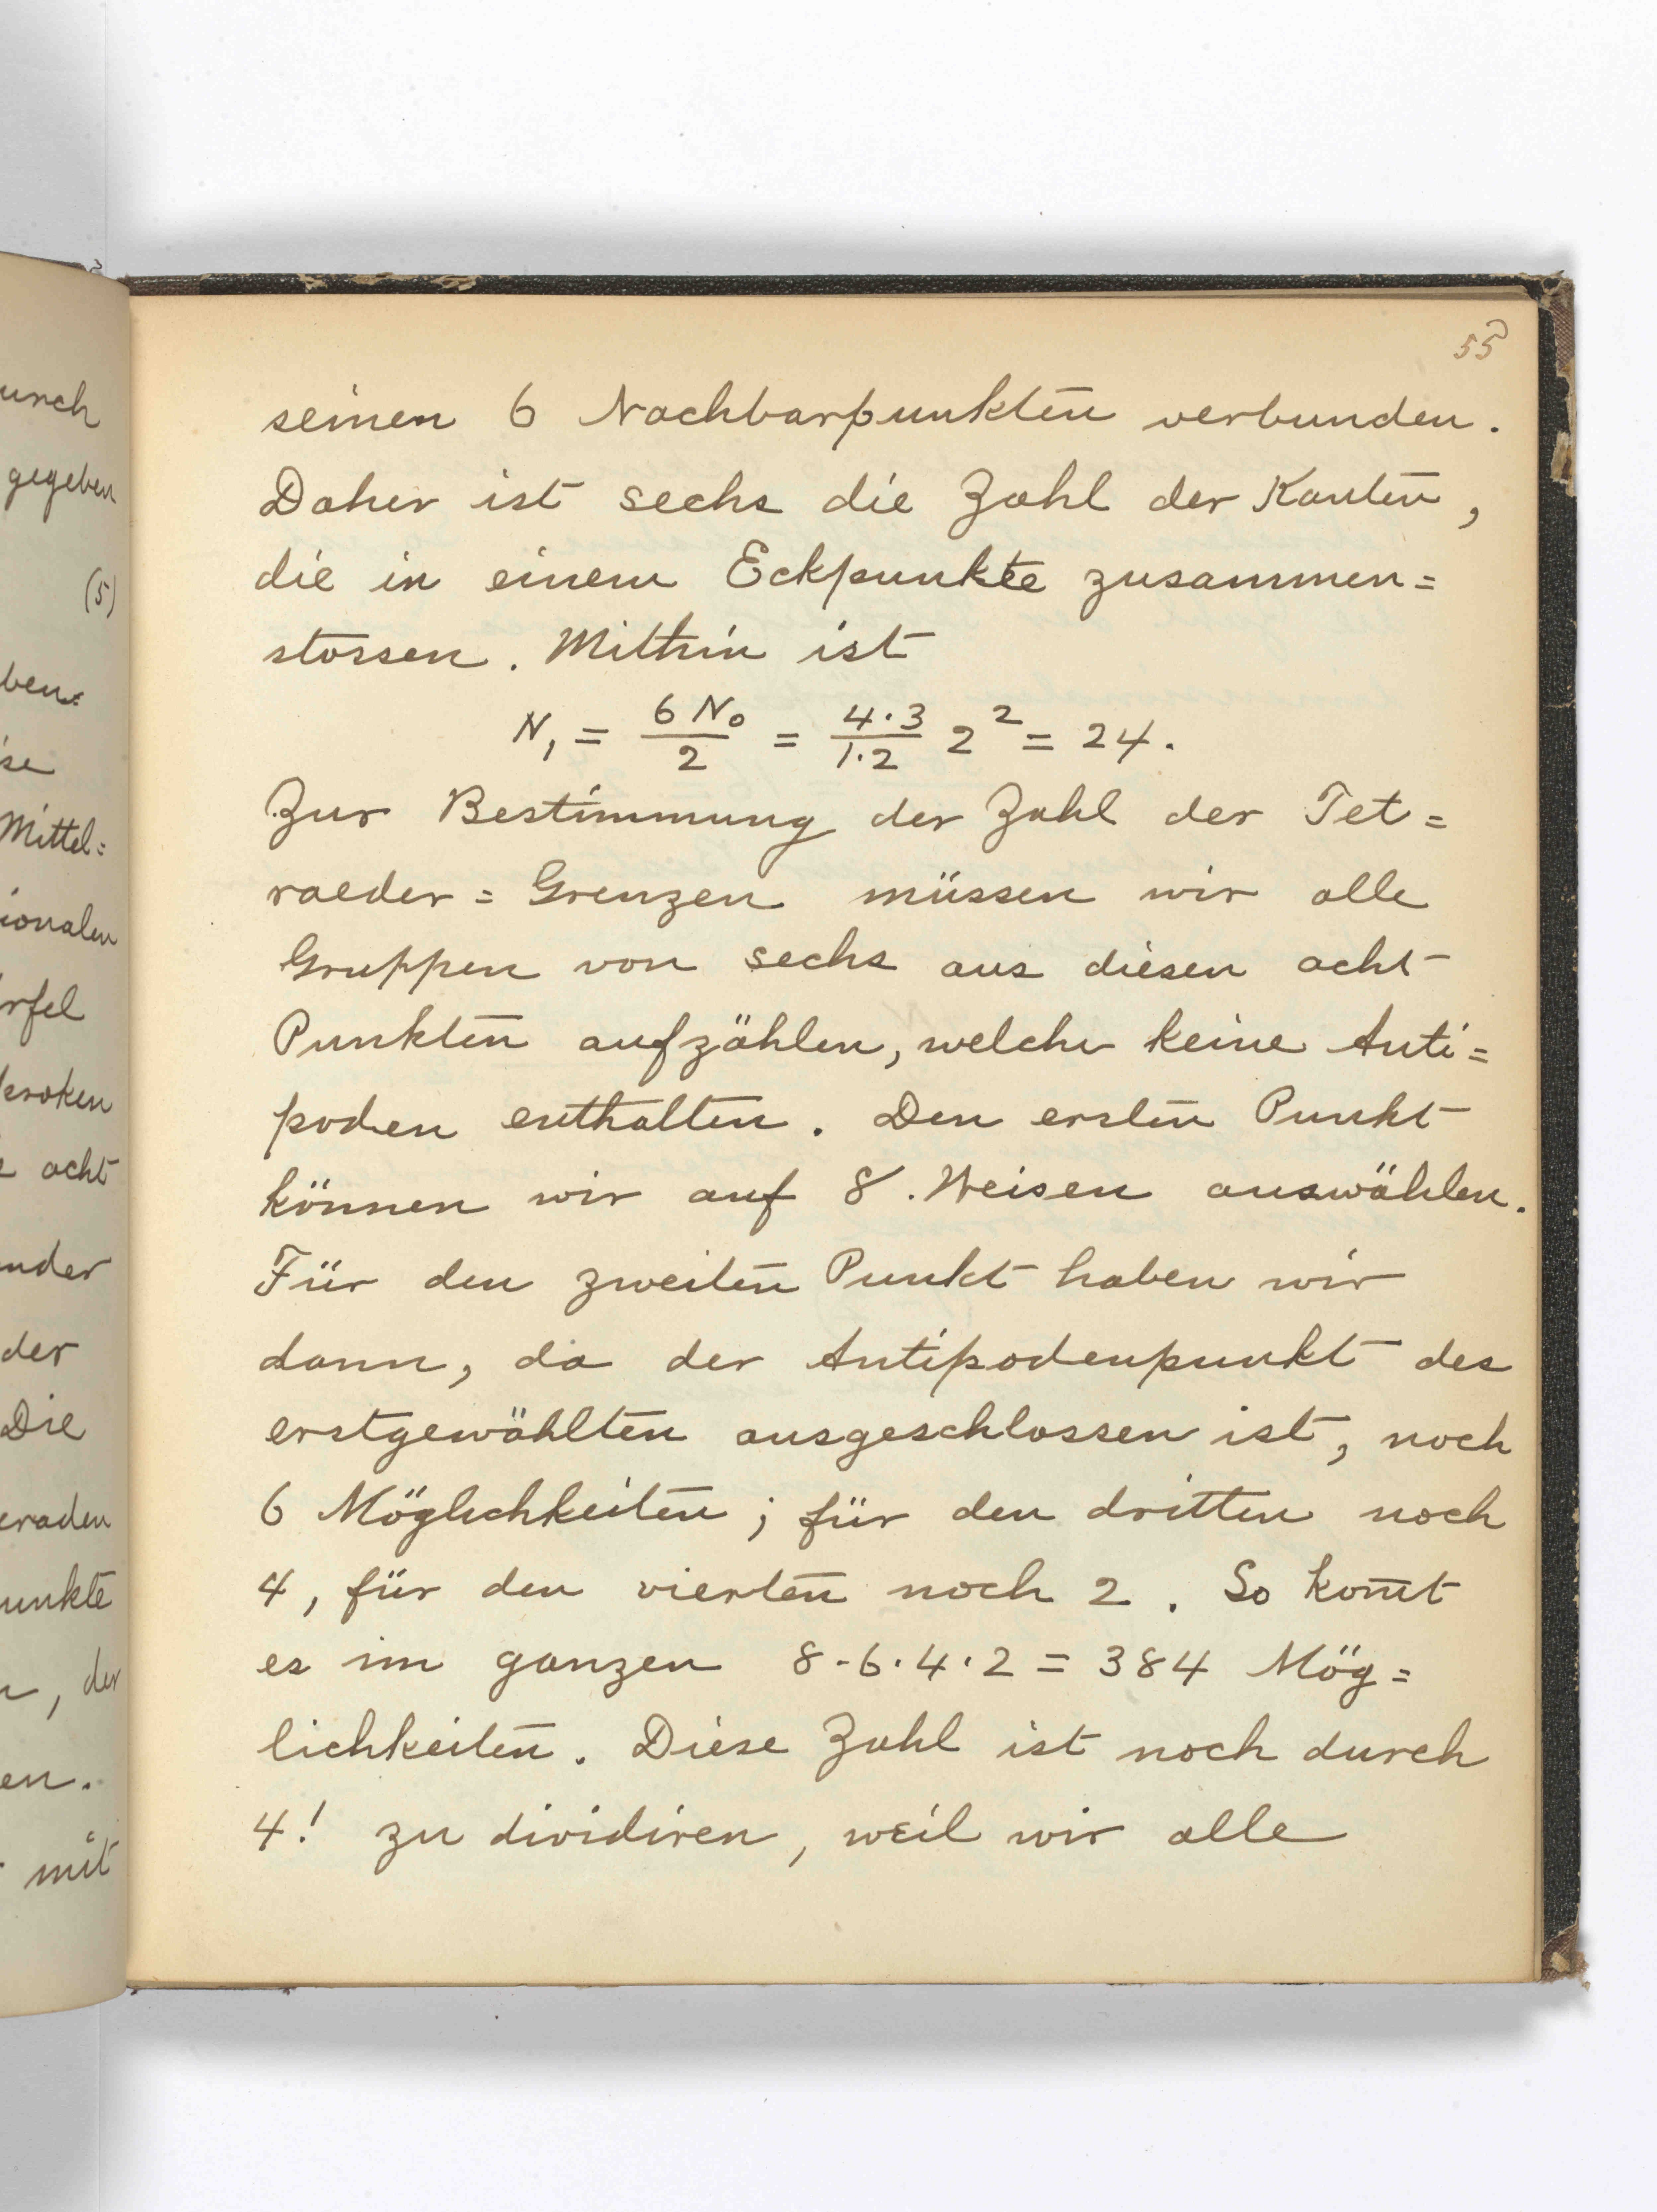 urch
gegeben
(5)
ben=
ise
Mittel=
ionalen
rfel
eroken
acht
nder
der
Die
eraden
unkte
n, der
en.
mit
55
seinen 6 Nachbarpunkten verbunden.
Daher ist sechs die Zahl der Kanten,
die in einem Eckpunkte zusammen=
stossen. Mithin ist
N₁ = 6N₀/2 = 4·3/1·2 2² = 24.
Zur Bestimmung der Zahl der Tet=
raeder=Grenzen müssen wir alle
Gruppen von sechs aus diesen acht
Punkten aufzählen, welche keine Anti=
poden enthalten. Den ersten Punkt
können wir auf 8. Weisen auswählen.
Für den zweiten Punkt haben wir
dann, da der Antipodenpunkt des
erstgewählten ausgeschlossen ist, noch
6 Möglichkeiten; für den dritten noch
4, für den vierten noch 2. So kom̅t
es im ganzen 8·6·4·2 = 384 Mög=
lichkeiten. Diese Zahl ist noch durch
4! zu dividiren, weil wir alle